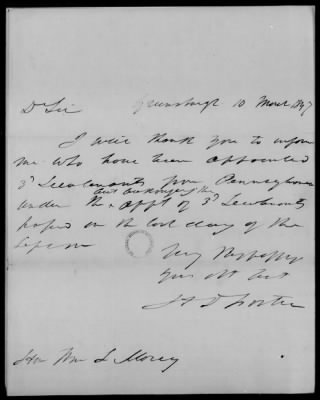 Greensburgh 10 March 1847
Dr Sir
I will thank you to inform
me who have been appointed
3d Lieutenants from Pennsylvania
act authorizing the
under the appt of 3d Lieutenants
passed on the last day of the
Session
Very Respctfly
Your Obt Svt
H D Foster
Hon Wm L Marcy